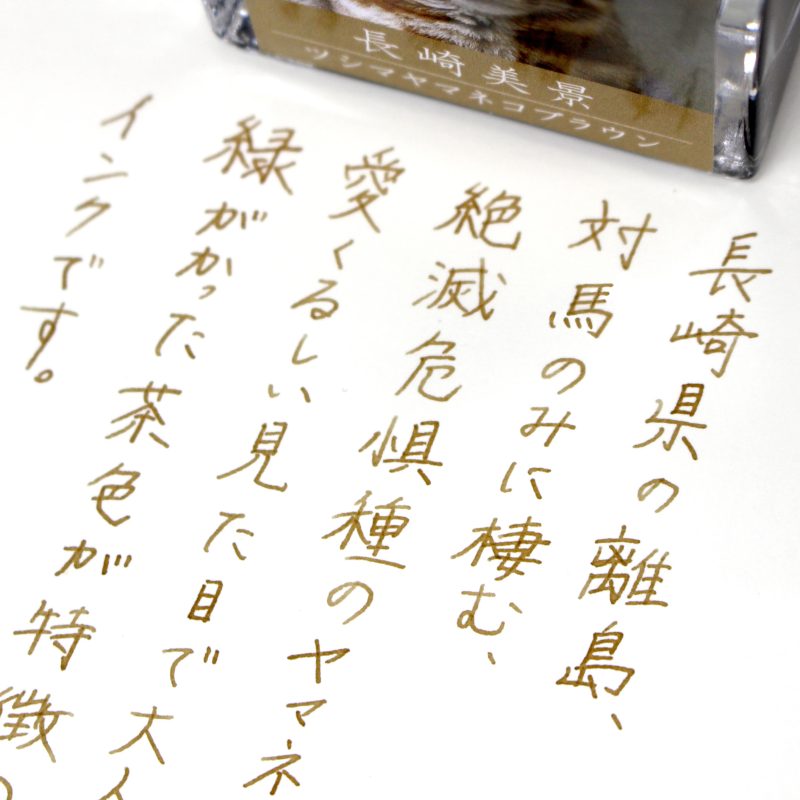 長崎美景
ツシマヤマネコブラウン
長崎県の離島、
対馬のみに棲む、
絶滅危惧種のヤマネ
愛くるしい見た目で大
緑がかった茶色が特徴
インクです。